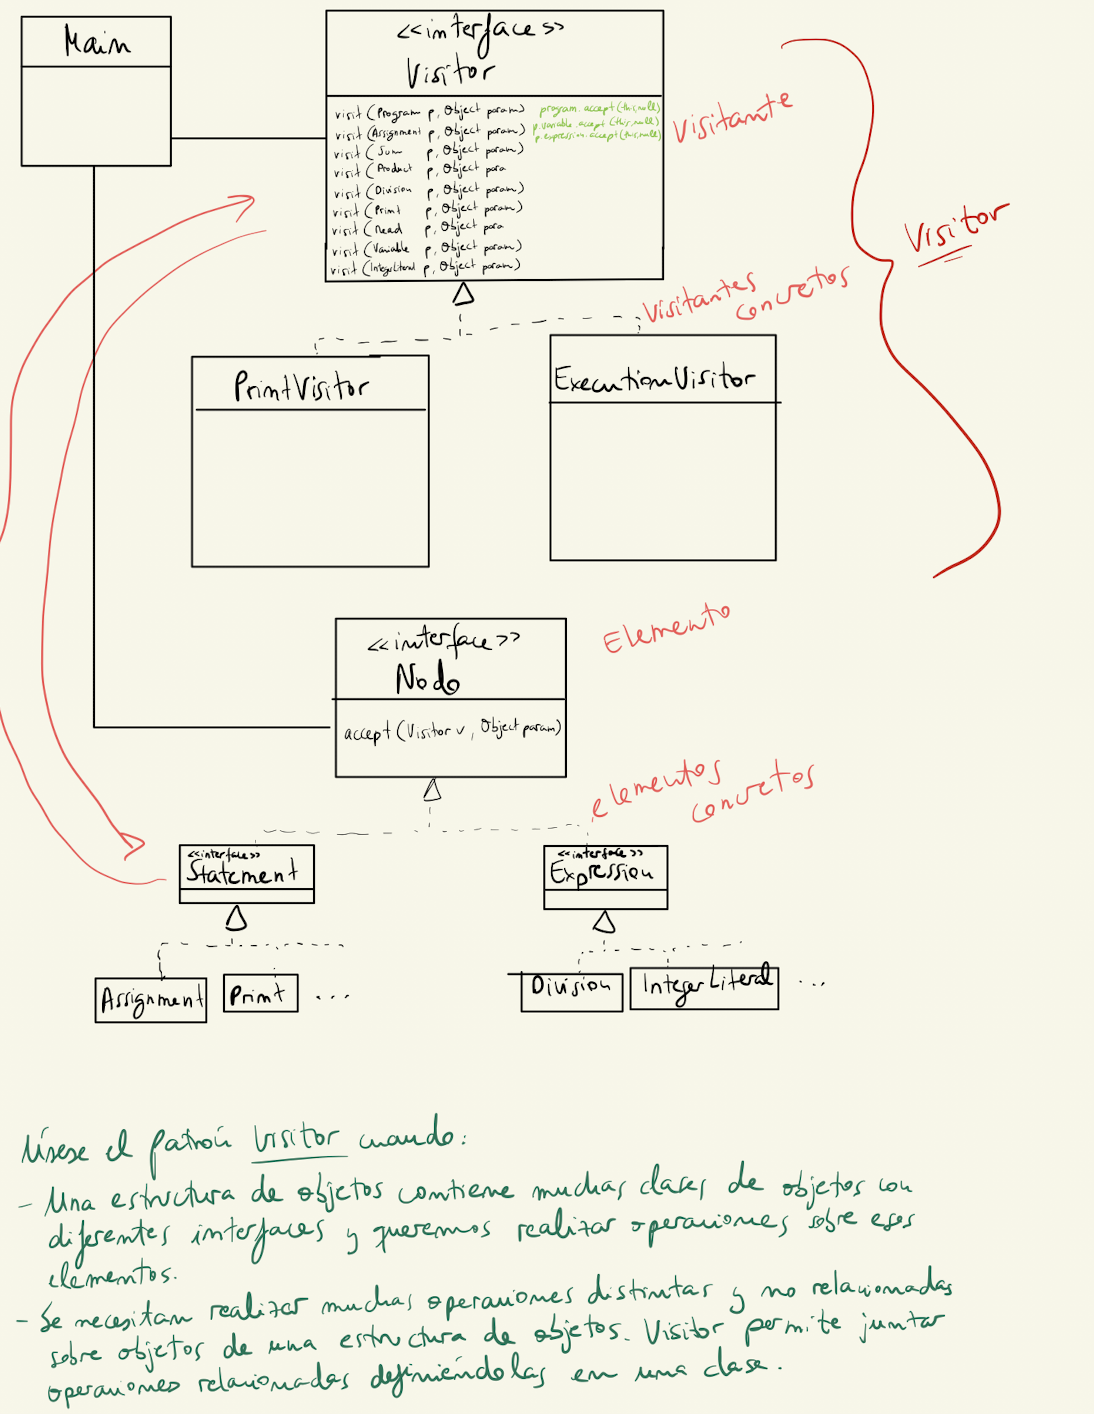 Main
<<interface>>
Visitor
visit (Program p, Object param) program.accept(this,null)
visit (Assignment p, Object param) p.variable.accept(this,null)
p.expression.accept(this,null)
visit (Sum p, Object param)
visit (Product p, Object para
visit (Division p, Object param)
visit (Print p, Object param)
visit (Read p, Object para
visit (Variable p, Object param)
visit (IntegerLiteral p, Object param)
Visitante
Visitor
Visitantes
concretos
PrintVisitor
ExecutionVisitor
<<interface>>
Nodo
accept (Visitor v, Object param)
Elemento
elementos
concretos
<<interface>>
Statement
<<interface>>
Expression
Assignment
Print
...
Division
IntegerLiteral
...
Úsese el patrón Visitor cuando:
- Una estructura de objetos contiene muchas clases de objetos con
diferentes interfaces y queremos realizar operaciones sobre esos
elementos.
- Se necesitan realizar muchas operaciones distintas y no relacionadas
sobre objetos de una estructura de objetos. Visitor permite juntar
operaciones relacionadas definiéndolas en una clase.